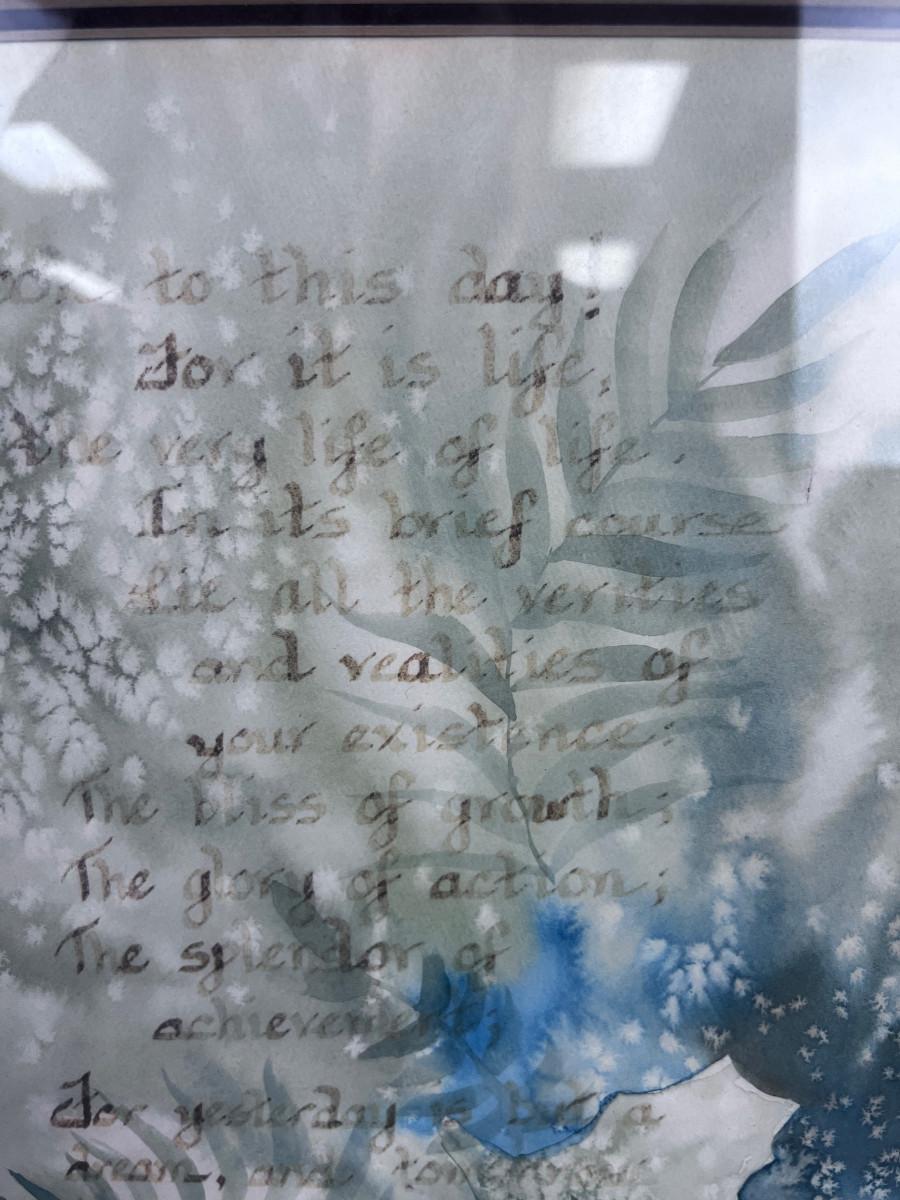 to this day!
For it is life,
the very life of life.
In its brief course
Lie all the verities
and realities of
your existence:
The bliss of growth;
The glory of action;
The splendor of
achievement;
For yesterday is but a
dream, and